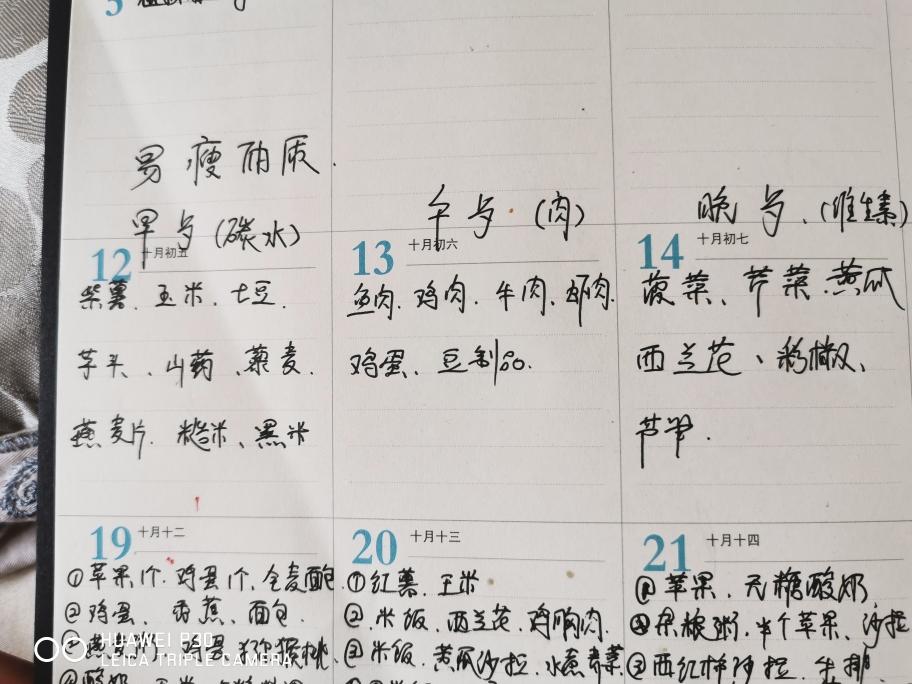 5
易瘦体质.
早与(碳水)
午与(肉)
晚与.(维生素)
12 十月初五
紫薯. 玉米. 土豆.
芋头、山药、藜麦.
燕麦片. 糙米、黑米
13 十月初六
鱼肉. 鸡肉. 牛肉、虾肉.
鸡蛋、豆制品.
14 十月初七
菠菜、芹菜.黄瓜
西兰花、彩椒、
芦笋.
19 十月十二
①苹果1个. 鸡蛋1个, 全麦面包
②鸡蛋、香蕉、面包
鸡蛋 猕猴桃
酸奶
20 十月十三
①红薯. 玉米
②米饭. 西兰花. 鸡胸肉.
③米饭. 黄瓜沙拉. 水煮青菜
21 十月十四
①苹果、无糖酸奶
②杂粮粥、半个苹果、沙拉
③西红柿沙拉、牛排
HUAWEI P30
LEICA TRIPLE CAMERA